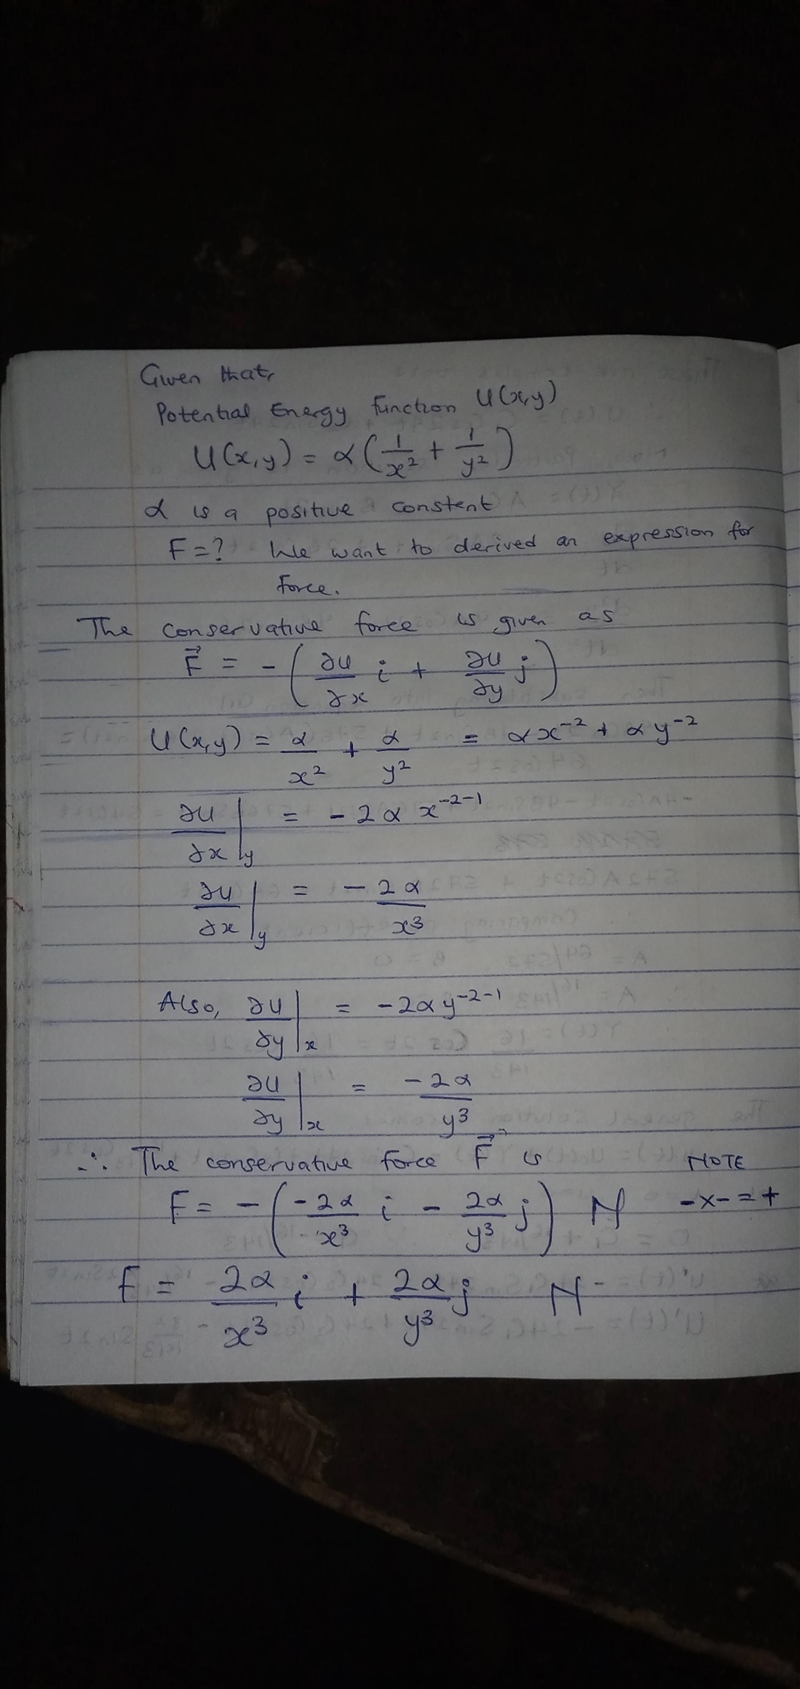 Given that,
Potential Energy function U(x,y)
U(x,y) = α(1/x² + 1/y²)
α is a positive constant
F=? We want to derived an expression for
force.
The conservative force is given as
F⃗ = -(∂U/∂x i + ∂U/∂y j)
U(x,y) = α/x² + α/y² = αx⁻² + αy⁻²
∂U/∂x|y = -2αx⁻²⁻¹
∂U/∂x|y = -2α/x³
Also, ∂U/∂y|x = -2αy⁻²⁻¹
∂U/∂y|x = -2α/y³
∴ The conservative force F⃗ is NOTE
F = -(-2α/x³ i - 2α/y³ j) N -x-=+
F = 2α/x³ i + 2α/y³ j N